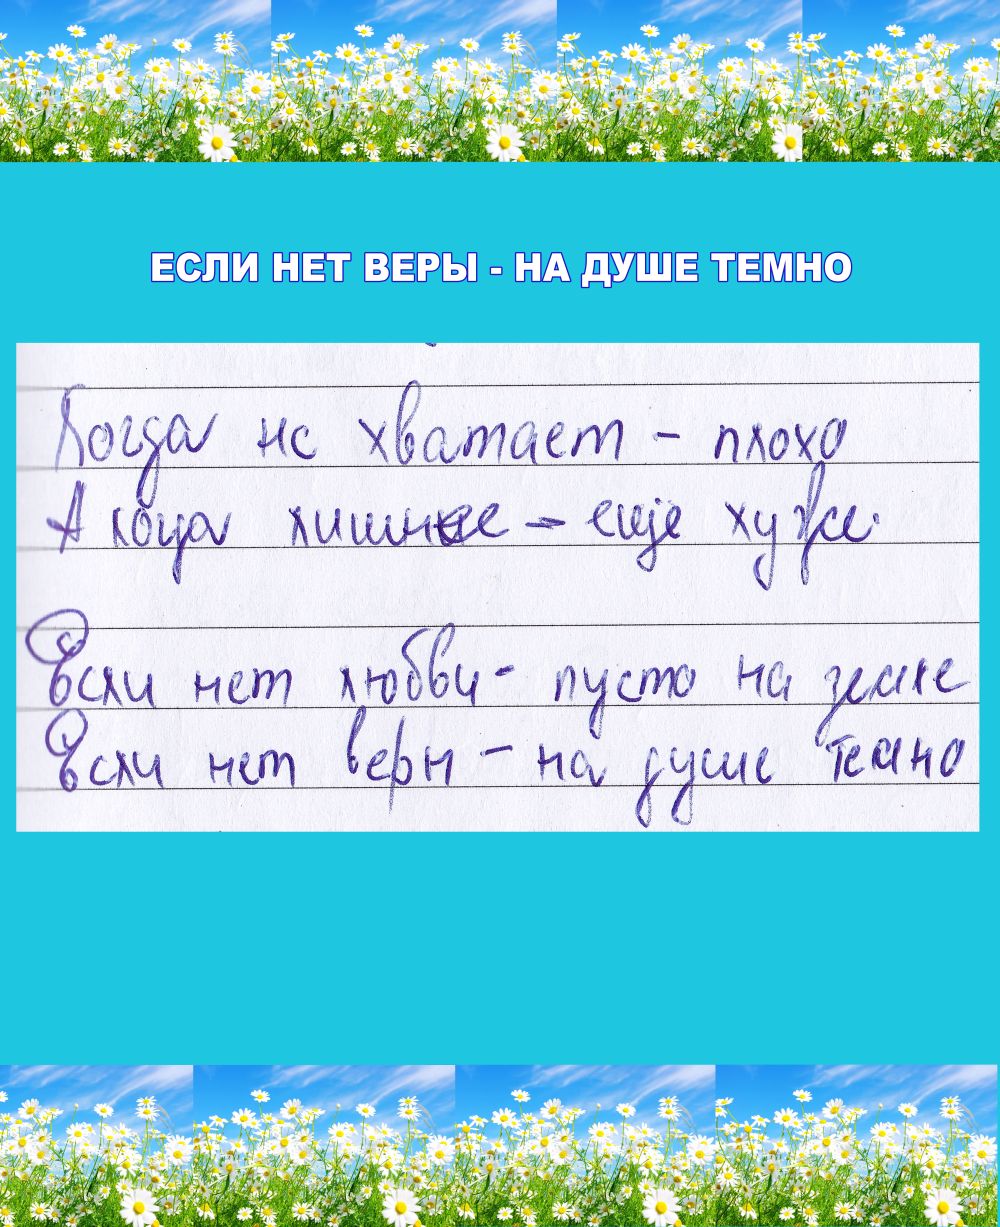 ЕСЛИ НЕТ ВЕРЫ - НА ДУШЕ ТЕМНО
Когда не хватает - плохо
А когда лишнее - еще хуже.
Если нет любви - пусто на земле
Если нет веры - на душе темно